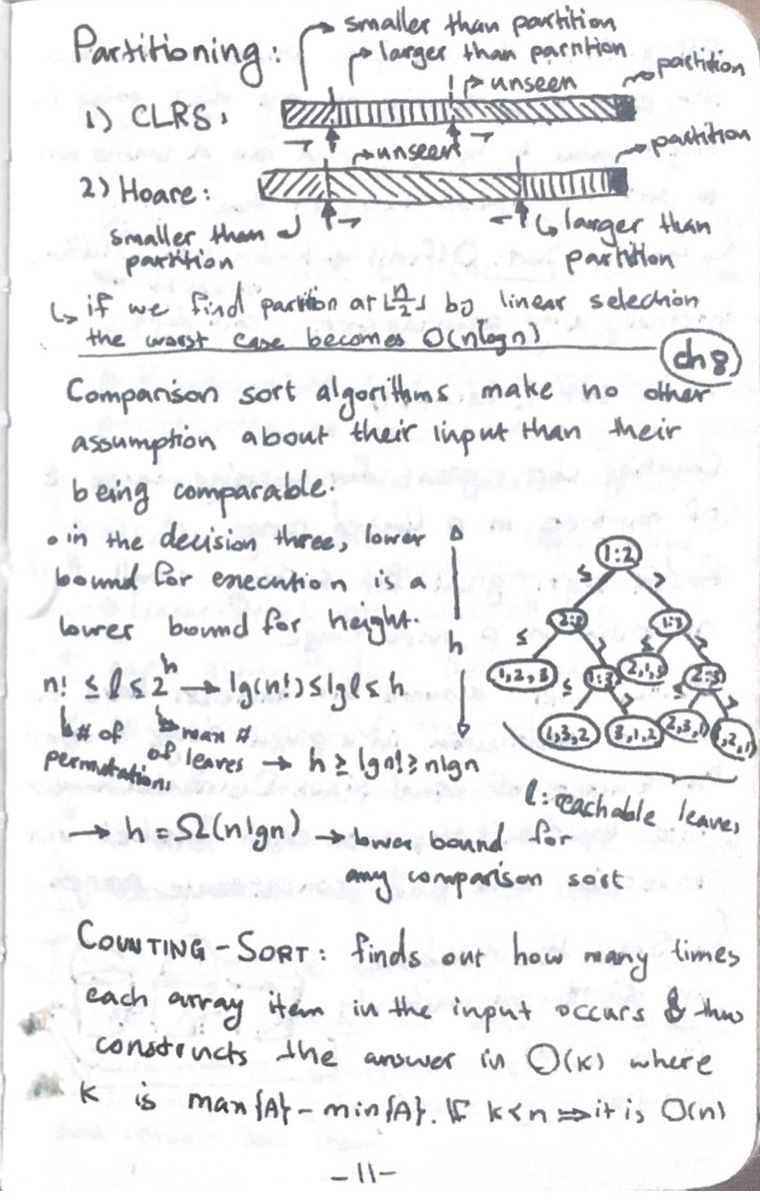 Partitioning:
smaller than partition
larger than parntion
unseen
partition
1) CLRS:
unseen
partition
2) Hoare:
smaller than
partition
larger than
partition
↳ if we find partition at ⌊n/2⌋ by linear selection
the worst case becomes O(nlogn)
ch 8
Comparison sort algorithms make no other
assumption about their input than their
being comparable.
• in the decision three, lower
bound for execution is a
lower bound for height.
h
n! ≤ l ≤ 2^h → lg(n!) ≤ lg l ≤ h
# of
permutations
max #
of leaves
→ h ≥ lg n! ≥ n lg n
1:2
≤ >
2:3 1:3
≤ > ≤ >
1,2,3 1:3 2,1,3 2:3
≤ > ≤ >
1,3,2 3,1,2 2,3,1 3,2,1
l: reachable leaves
→ h = Ω(n lg n) → lower bound for
any comparison sort
COUNTING-SORT: finds out how many times
each array item in the input occurs & thus
constructs the answer in Θ(k) where
k is max{A} - min{A}. If k<n ⇒ it is O(n)
-11-